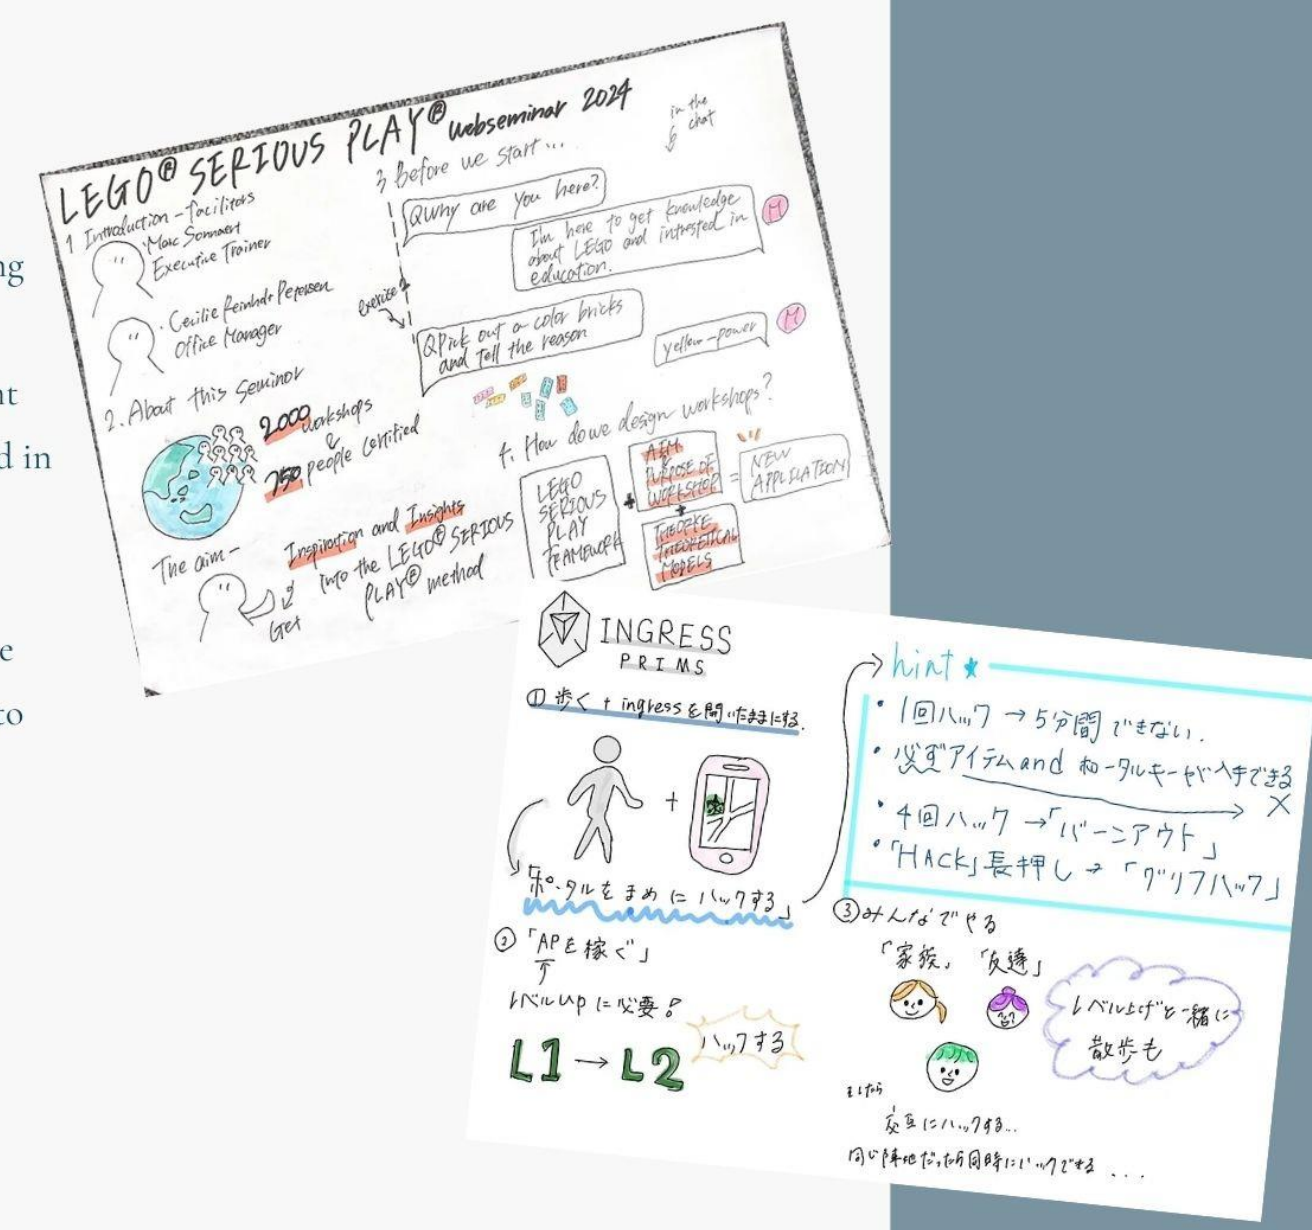 ng
nt
d in
e
to
LEGO® SERIOUS PLAY® webseminar 2024
1 Introduction - facilitors
Marc Sonnaert
Executive Trainer
Cecilie Reinholdt Petersen
Office Manager
2. About this seminor
2000 workshops
&
750 people certified
The aim-
Get
Inspiration and Insights
into the LEGO® SERIOUS
PLAY® method
3 Before we start...
in the
chat
Q Why are you here?
I'm here to get knowledge
about LEGO and intrested in
education.
M
Q Pick out a color bricks
and tell the reason
yellow-power
M
4. How do we design workshops?
LEGO
SERIOUS
PLAY
FRAMEWORK
+
AIM
PURPOSE OF
WORKSHOP
+
THEORETICAL
MODELS
=
NEW
APPLICATION
INGRESS
PRIMS
① 歩く + ingressを開いたままにする.
+
「ポータルをまめにハックする」
hint
・1回ハック → 5分間できない.
・必ずアイテムand ポータルキーが入手できる
×
・4回ハック →「バーンアウト」
・「HACK」長押し → 「グリフハック」
② 「APを稼ぐ」
レベルupに必要!
L1 → L2
ハックする
③ みんなでやる
「家族」 「友達」
レベル上げと一緒に
散歩も
交互にハックする...
同じ陣地だったら同時にハックできる...